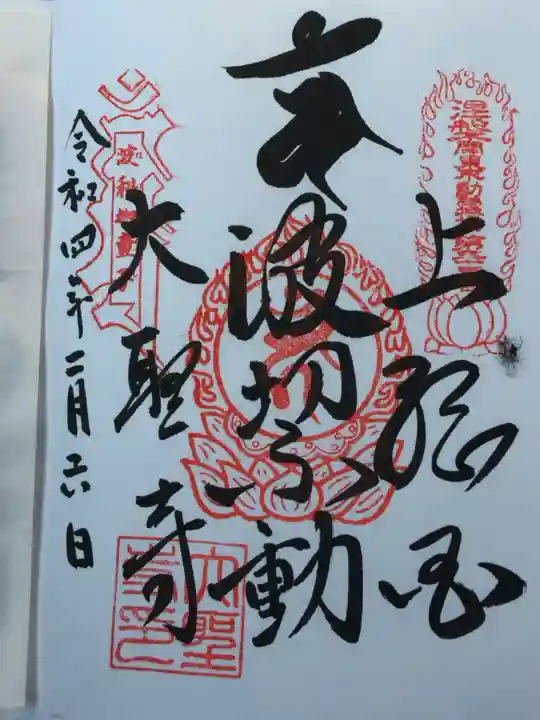 上総国
波切不動
大聖寺
令和四年二月六日
波切不動
大聖